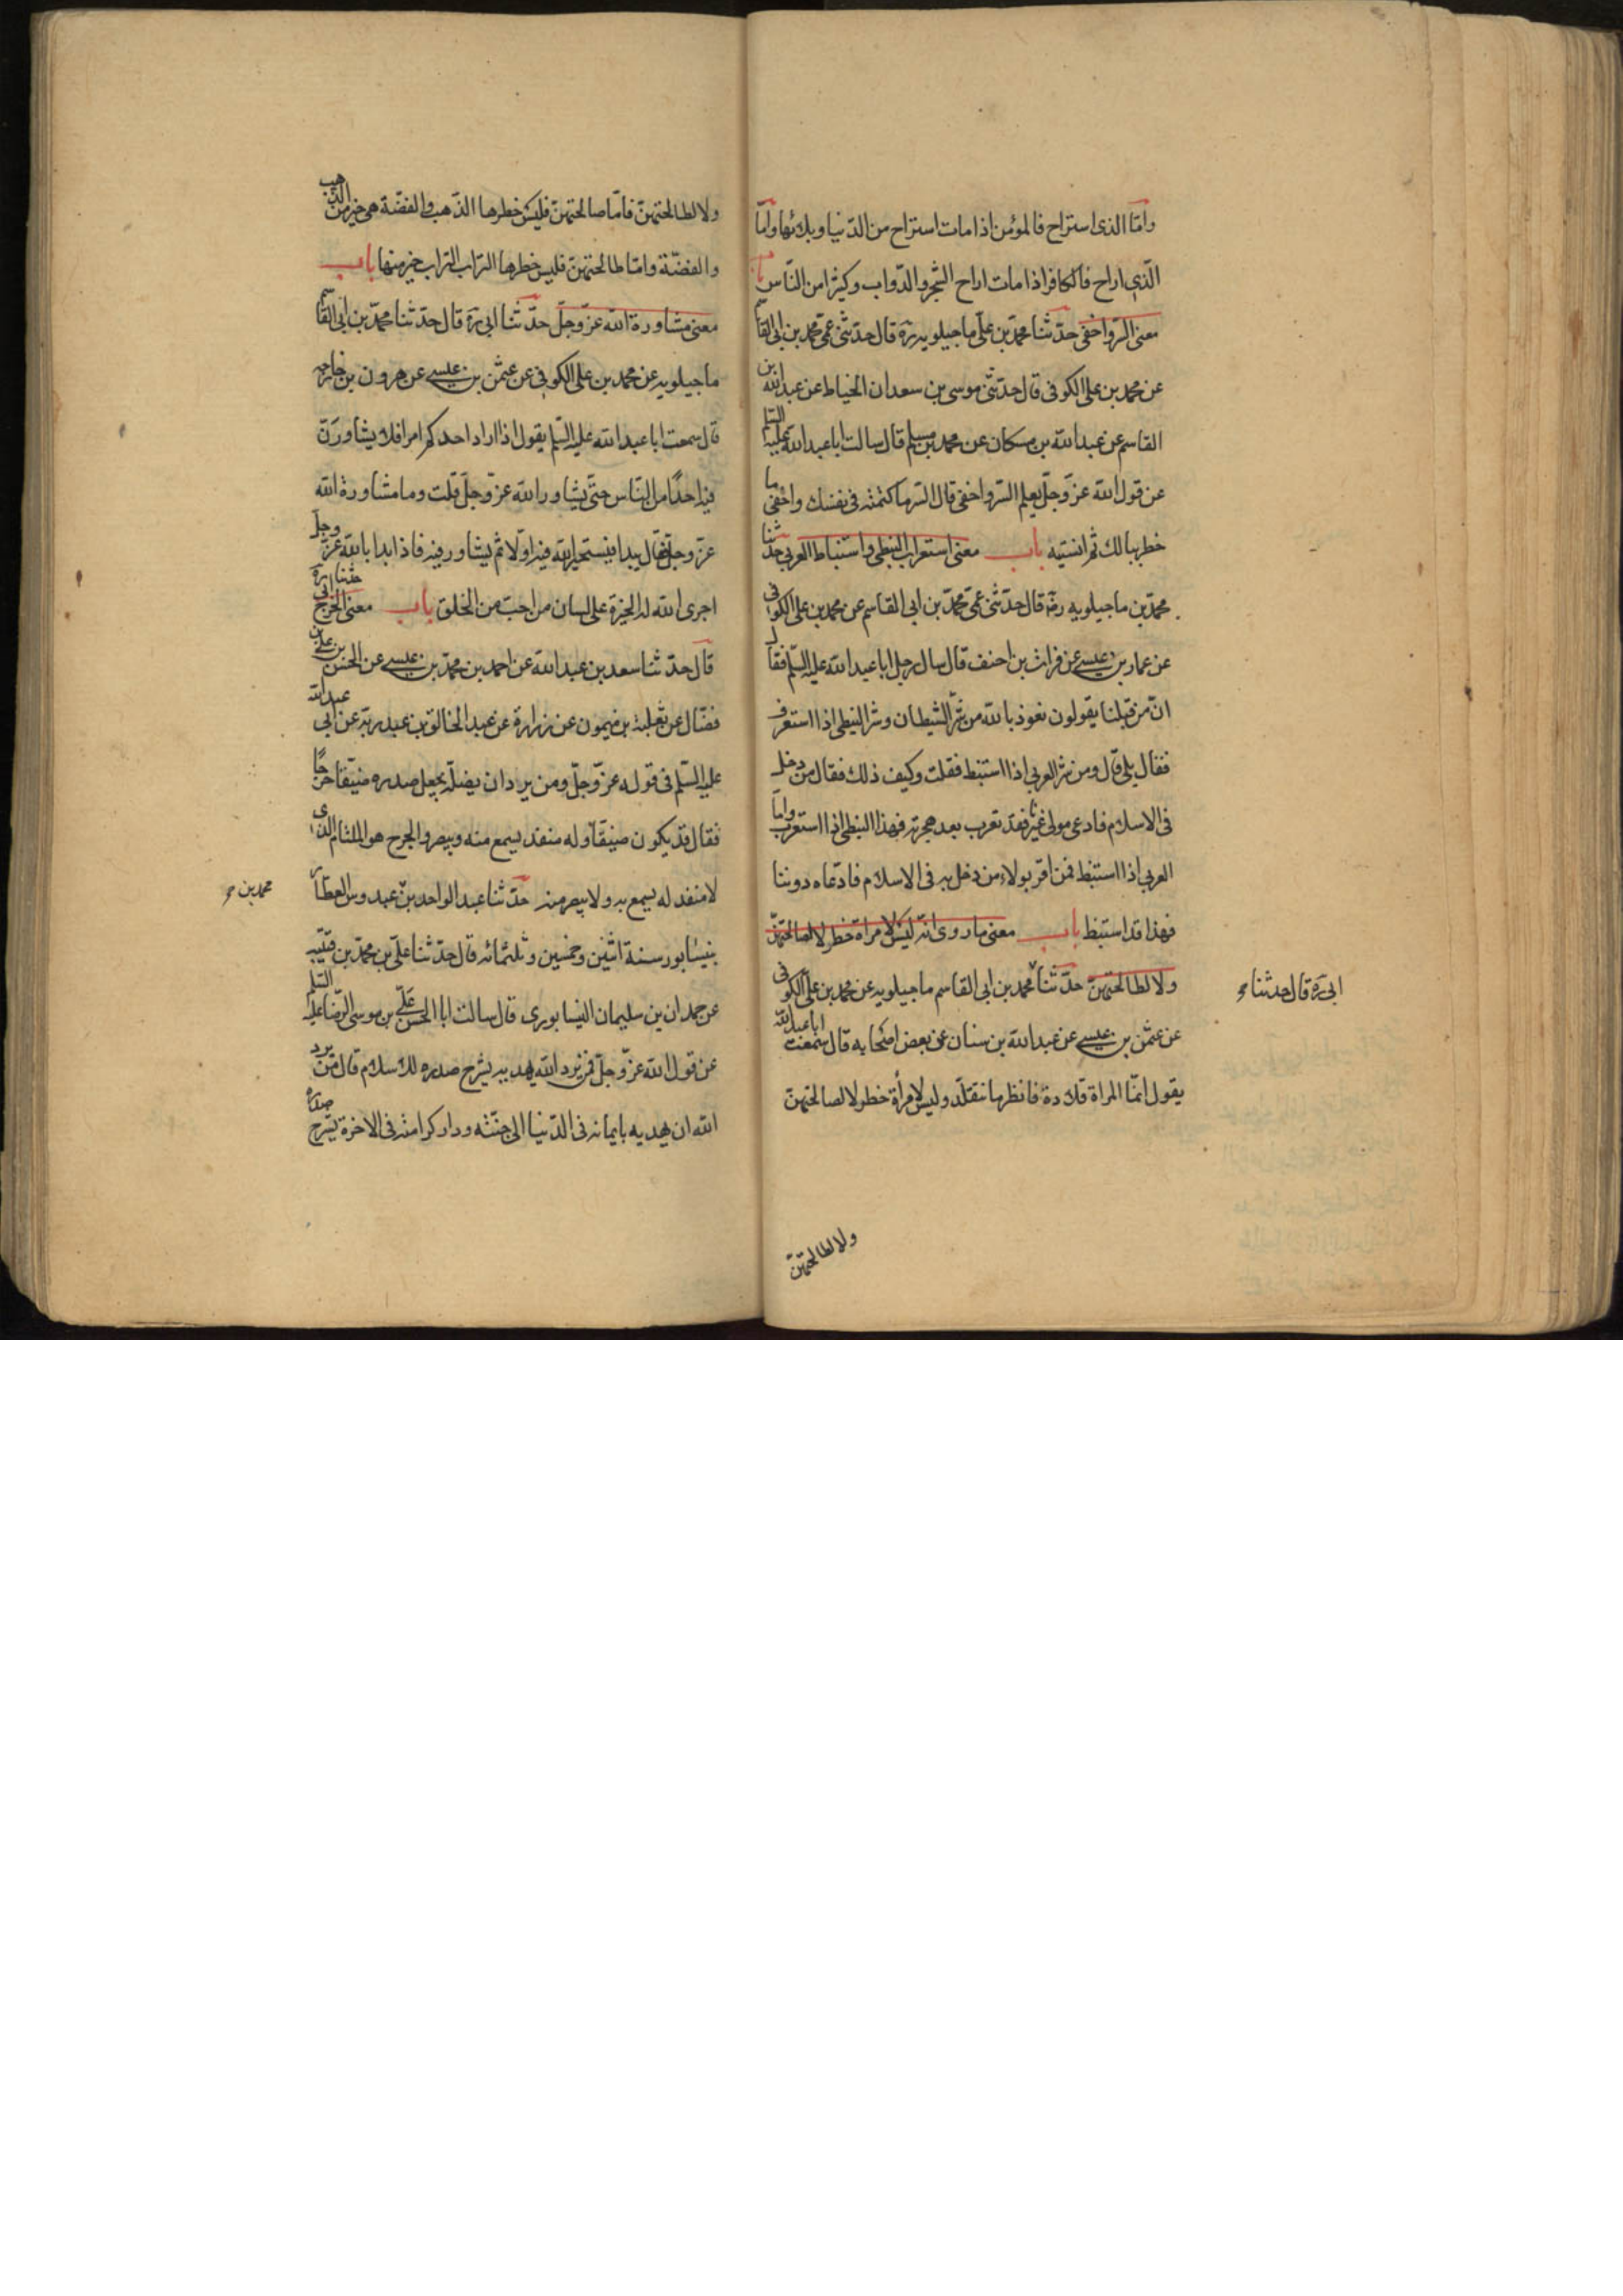 وامّا الذى استراح فالمؤمن اذا مات استراح من الدّنيا وبلائها وامّا
الّذى اراح فالكافر اذا مات اراح الشّجر والدّواب وكثيرًا من النّاس باب
معنى السّر واخفى حدّثنا محمّد بن علىّ ماجيلويه ره قال حدّثنى عمّى محمّد بن ابى القاسم
عن محمد بن على الكوفى قال حدّثنى موسى بن سعدان الخياط عن عبدالله بن
القاسم عن عبدالله بن مسكان عن محمد بن مسلم قال سالت اباعبدالله عليه السّلم
عن قول الله عزّ وجلّ يعلم السّر واخفى قال السّر ما كتمته فى نفسك واخفى ما
خطر ببالك ثم انسيته باب معنى استعراب النبطى واستنباط العربى حدّثنا
محمّد بن ماجيلويه رضه قال حدّثنى عمّى محمّد بن ابى القاسم عن محمد بن على الكوفى
عن عمار بن عيسى عن فرات بن احنف قال سال رجل اباعبدالله عليه السّلم فقال
انّ من قبلنا يقولون نعوذ بالله من شرّ الشيطان وشر النبطى اذا استعرف
فقال بلى قال ومن شر العربى اذا استنبط فقلت وكيف ذلك فقال من دخل
فى الاسلام فادعى مولى غيرنا فقد تعرب بعد هجرته فهذا النبطى اذا استعرب وامّا
العربى اذا استنبط فمن اقر بولاء من دخل به فى الاسلام فادّعاه دوننا
فهذا قد استنبط باب معنى ما روى انّه ليس لامراة خطر لا لصالحتهنّ
ولا لطالحتهنّ حدّثنا محمد بن ابى القاسم ماجيلويه عن محمد بن علىّ الكوفى
ابى ره قال حدثنا
عن عثمن بن عيسى عن عبدالله بن سنان عن بعض اصحابه قال سمعت اباعبدالله
يقول انمّا المراة قلادة فانظر ما تتقلّد وليس لامرأة خطر لا لصالحتهنّ
ولا لطالحتهنّ
ولا لطالحتهنّ فامّا صالحتهنّ فليس خطرها الذّهب والفضّة هى خير من الذّهب
والفضّة وامّا طالحتهنّ فليس خطرها التراب التراب خير منها باب
معنى مشاورة الله عزّ وجلّ حدّثنا ابى ره قال حدّثنا محمّد بن ابى القاسم
ماجيلويه عن محمد بن على الكوفى عن عثمن بن عيسى عن هرون بن خارجه
قال سمعت اباعبدالله عليه السّلم يقول اذا اراد احدكم امرا فلا يشاورنّ
فيه احدًا من النّاس حتّى يشاور الله عزّ وجلّ قلت وما مشاورة الله
عزّ وجلّ فقال يبدا فيستخير الله فيه اوّلا ثم يشاور فيه فاذا بدا بالله عزّ وجلّ
اجرى الله له الخيرة على لسان من احبّ من الخلق باب معنى الحرج حدثنا ابى ره
قال حدّثنا سعد بن عبدالله عن احمد بن محمّد بن عيسى عن الحسن بن على بن
فضّال عن ثعلبة بن ميمون عن زرارة عن عبدالخالق بن عبدربه عن ابى عبدالله
عليه السّلم فى قوله عزّ وجلّ ومن يرد ان يضلّه يجعل صدره ضيّقا حرجًا
فقال قد يكون ضيّقا وله منفد يسمع منه ويبصر والحرج هو الملتئام الّذى
لا منفد له يسمع به ولا يبصر منه حدّثنا عبدالواحد بن عبدوس العطّار
محمد بن
بنيسابور سنة اثنين وخمسين وثلثمائه قال حدّثنا علىّ بن محمّد بن قتيبه
عن حمدان بن سليمان النيسابورى قال سالت اباالحسن علىّ بن موسى الرّضا عليه السّلم
عن قول الله عزّ وجلّ فمن يرد الله ان يهديه يشرح صدره للاسلام قال من يرد
الله ان يهديه بايمانه فى الدّنيا الى جنّته ودار كرامته فى الاخرة يشرح صدره